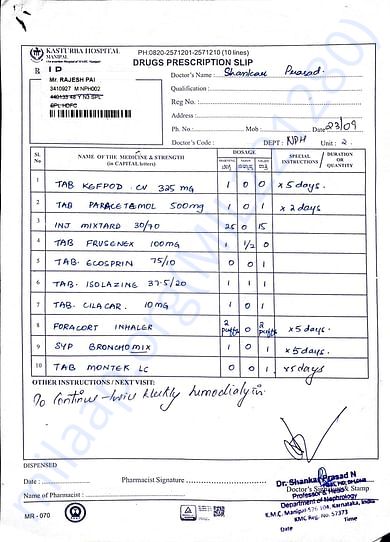 KASTURBA HOSPITAL
MANIPAL
PH:0820-2571201-2571210 (10 lines)
DRUGS PRESCRIPTION SLIP
R I P
Mr. RAJESH PAI
3410927 M NPH002
Doctor's Name : Shankar Prasad.
Qualification :
Reg No. :
Address :
Ph. No. : Mob : Date 23/09
Doctor's Code : DEPT : NPH Unit : 2.
Sl No NAME OF THE MEDICINE & STRENGTH (in CAPITAL letters) DOSAGE SPECIAL INSTRUCTIONS DURATION OR QUANTITY
1 TAB KGFPOD. CV 325 mg 1 0 0 x 5 days.
2 TAB PARACETAMOL 500mg 1 0 1 x 2 days
3 INJ MIXTARD 30/70 25 0 15
4 TAB FRUSENEX 100mg 1 1/2 0
5 TAB. ECOSPRIN 75/10 0 0 1
6 TAB. ISOLAZINE 37.5/20 1 1 1
7 TAB. CILACAR. 10mg 1 0 1
8 FORACORT INHALER 2 puffs 0 2 puffs x 5 days.
9 SYP BRONCHOMIX 1 0 1 x 5 days.
10 TAB MONTEK LC 0 0 1 x 5 days
OTHER INSTRUCTIONS / NEXT VISIT:
To continue thrice weekly hemodialysis
DISPENSED
Date : Pharmacist Signature :
Name of Pharmacist :
Doctor's Signature & Stamp
Dr. Shankar Prasad N
Professor & Head
Department of Nephrology
K.M.C. Manipal-576 104, Karnataka, India
KMC Reg. No. 57373
Date Time
MR - 070